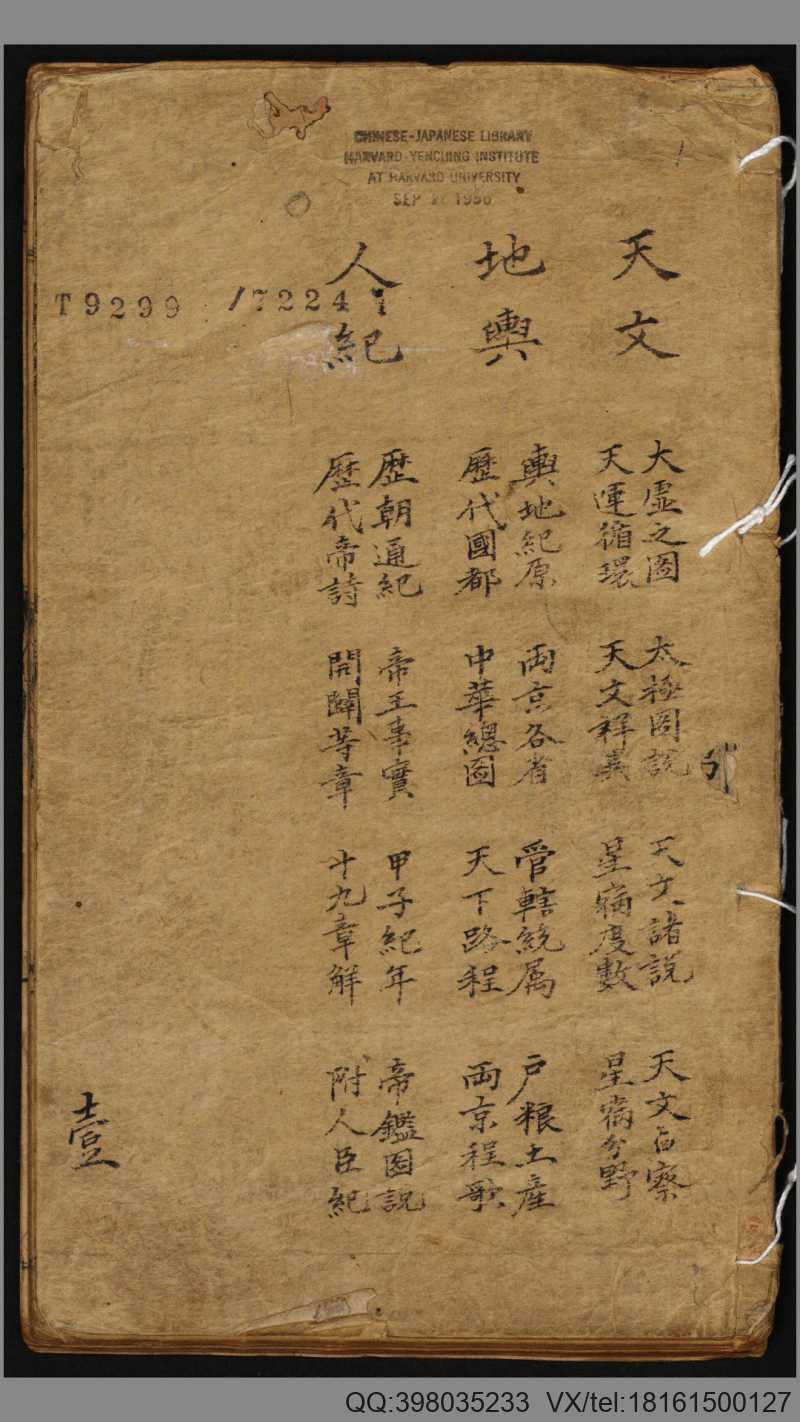 CHINESE-JAPANESE LIBRARY
HARVARD-YENCHING INSTITUTE
AT HARVARD UNIVERSITY
SEP 1956
T 9299 17224 1
天文
大虛之圖 太極圖説 天文諸説 天文占察
天運循環 天文祥異 星宿度數 星宿分野
地輿
輿地紀原 両京各省 管轄統属 户粮土產
歷代國都 中華總圖 天下路程 両京程歌
人紀
歷朝通紀 帝王事實 甲子紀年 帝鑑圖説
歷代帝詩 開闢等章 十九章解 附人臣紀
壹
QQ:398035233 VX/tel:18161500127